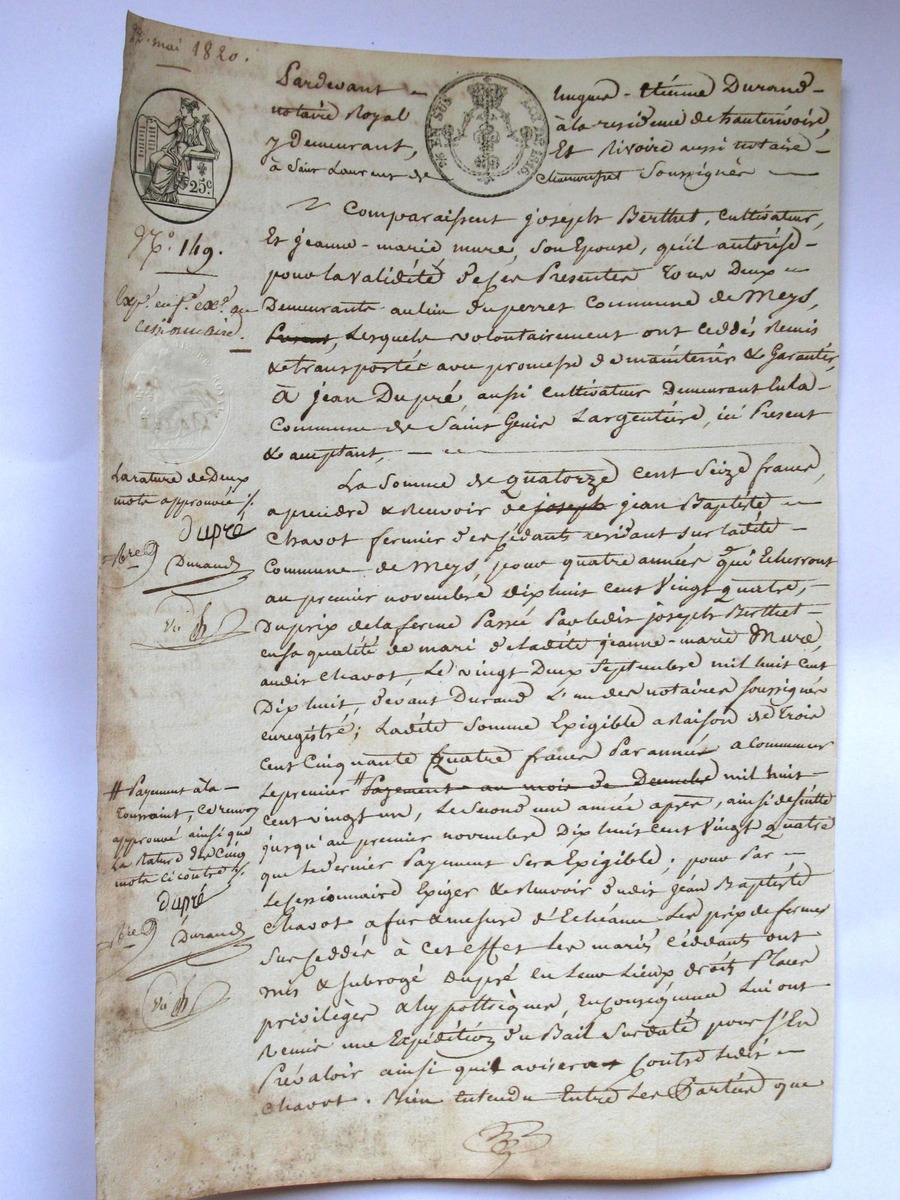 mai 1820.
Pardevant hugues-Etienne Durand-
notaire Royal à la residence de hauterivoire,
y Demeurant, Et Rivoire aussi notaire-
à Saint Laurent de Chamousset Soussignés
25c.
EN SUS
LOI DE 1816.
N.o 149.
Comparaissent joseph Berthet, Cultivateur,
Et jeanne-marie mure, son Epouse, qu'il autorise-
pour la validité des Presentes Tous Deux
Demeurants au lieu du perret Commune de Meys,
Lesquels volontairement ont ceddés Remis
& transportée avec promesse de maintenir & Garantir,
À jean Dupré aussi cultivateur Demeurant En la-
Commune de Saint Genis Largentière, ici Present
& acceptant,
La Somme de quatorze cent Seize francs,
a prendre & Recevoir de joseph jean Baptiste
Chavot fermier des Cédants residant sur ladite-
Commune de Meys, pour quatre années qui Echerront
au premier novembre dix huit cent Vingt quatre,
Du prix de la ferme Passée Par ledit joseph Berthet-
en sa qualité de mari de ladite jeanne-marie Mure,
audit Chavot, Le vingt Deux Septembre mil huit cent
Dix huit, devant Durand L'un des notaires soussignés
enregistré; Ladite Somme Exigible a Raison de Trois
cent Cinquante Quatre francs Par année a commencer
Le premier # Payement au mois de mil huit-
cent vingt un, Le Second une année après, ainsi de suitte
jusqu'au premier novembre Dix huit cent Vingt quatre
que Le dernier Payment Sera Exigible; pour Par-
Le Cessionnaire Exiger & Recevoir dudit jean Baptiste
Chavot a fur & mesure d'Echéance Les prix de fermes
Sus ceddés à cet effet les mariés Cédants ont
mis & subrogé Dupré en Leur Lieux droits Places
privilèges & hypothèques, En Conséquence Lui ont
Remis une Expédition du Bail Sus daté pour s'En
Prévaloir ainsi qu'il avisera Contre Ledit
Chavot. Bien Entendu Entre Les Parties que
au
Cessionnaire.
La rature de Deux
mots approuvée
Dupré
Durand
Payment à la
Toussaint, ce renvoy
approuvé ainsi que
La Rature des cinq
mots ci contre
Dupré
Durand